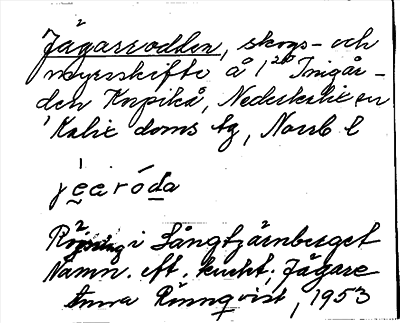 Jägarerodden, skogs- och
myrskifte å 1 20 Inigår-
den Korpikå, Nederkalix sn
Kalix doms tg, Norrb l
jèaróda
i Långtjärnberget
Namn. eft. kucht. Jägare
Rönnqvist, 1953